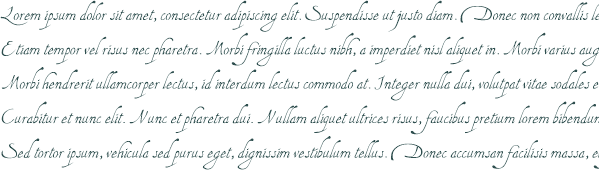 Lorem ipsum dolor sit amet, consectetur adipiscing elit. Suspendisse ut justo diam. Donec non convallis
Etiam tempor vel risus nec pharetra. Morbi fringilla luctus nibh, a imperdiet nisl aliquet in. Morbi varius
Morbi hendrerit ullamcorper lectus, id interdum lectus commodo at. Integer nulla dui, volutpat vitae sodales
Curabitur et nunc elit. Nunc et pharetra dui. Nullam aliquet ultrices risus, faucibus pretium lorem bibendum
Sed tortor ipsum, vehicula sed purus eget, dignissim vestibulum tellus. Donec accumsan facilisis massa,